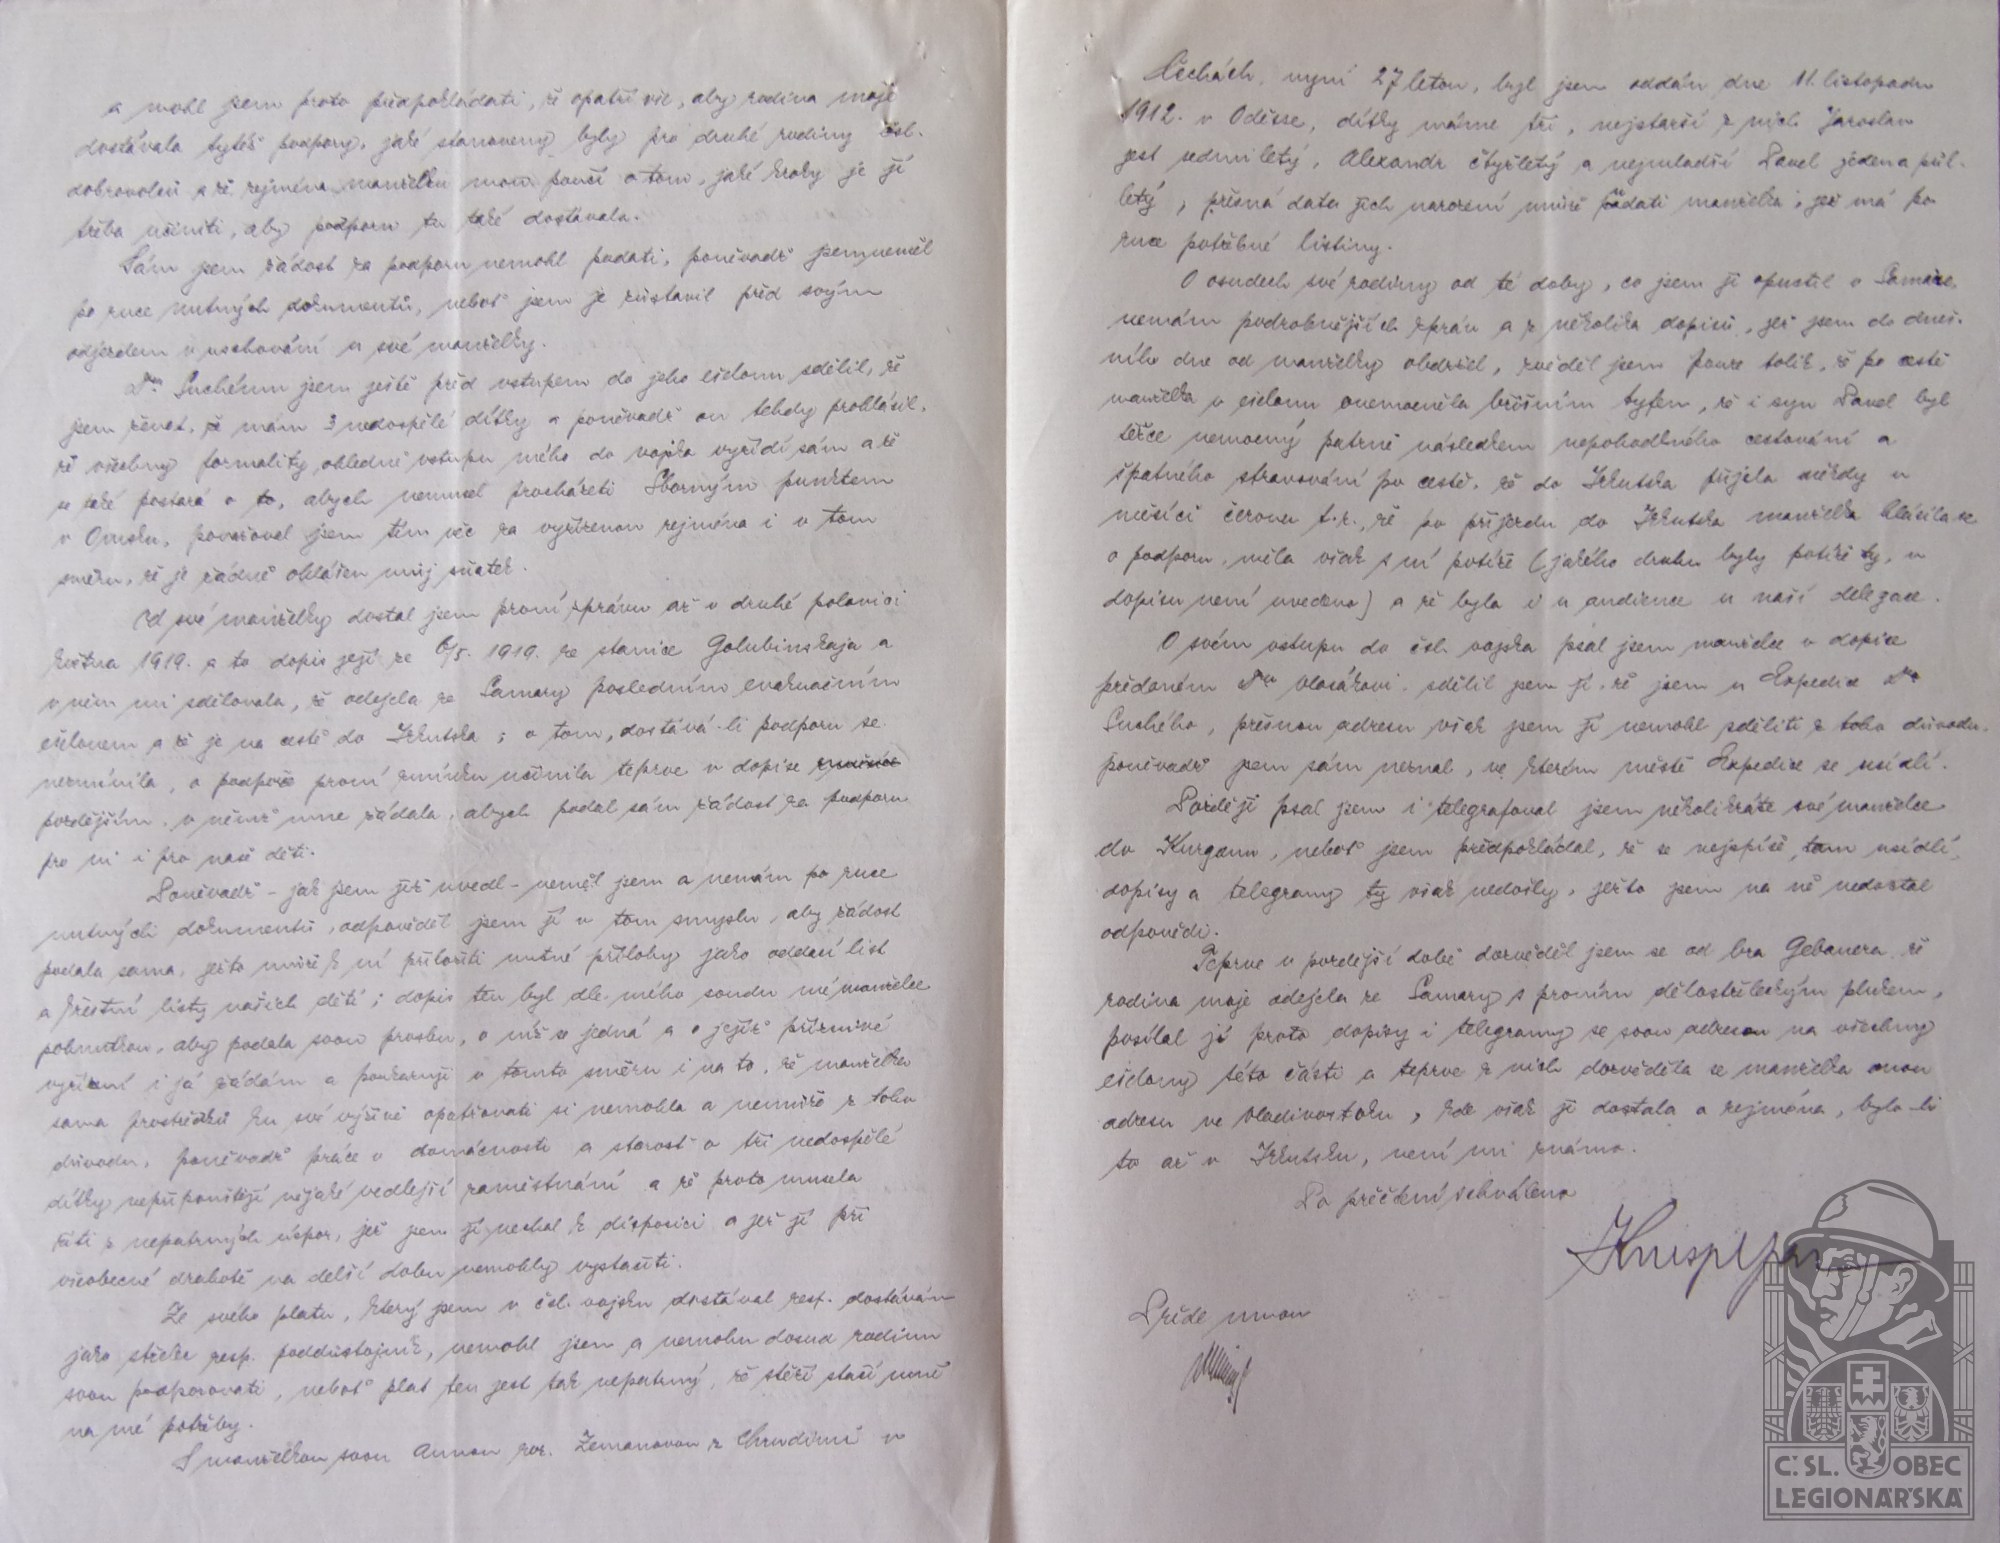 a mohl jsem proto předpokládati, že opatří vše, aby rodina moje
dostávala tytéž podpory, jaké stanoveny byly pro druhé rodiny čsl.
dobrovolců a že zejména manželku mou poučí o tom, jaké kroky je jí
třeba učiniti, aby podporu tu také dostávala.
Sám jsem žádost za podporu nemohl podati, poněvadž jsem neměl
po ruce nutných dokumentů, neboť jsem je zůstavil před svým
odjezdem v uschování u své manželky.
Dru Suchému jsem ještě před vstupem do jeho ešelonu sdělil, že
jsem ženat, že mám 3 nedospělé dítky a poněvadž on tehdy prohlásil,
že všechny formality ohledně vstupu mého do vojska vyřídí sám a že
se také postará o to, abych nemusel procházeti Sborným punktem
v Omsku, považoval jsem tím věc za vyřízenou zejména i v tom
směru, že je řádně ohlášen můj sňatek.
Od své manželky dostal jsem první zprávu až v druhé polovici
května 1919. a to dopis její ze 6/5. 1919. ze stanice Golubinskaja a
v něm mi sdělovala, že odejela ze Samary posledním evakuačním
ešelonem a že je na cestě do Irkutska; o tom, dostává-li podporu se
nezmínila, o podpoře první zmínku učinila teprve v dopise
pozdějším, v němž mne žádala, abych podal sám žádost za podporu
pro ni i pro naše děti.
Poněvadž - jak jsem již uvedl - neměl jsem a nemám po ruce
nutných dokumentů, odpověděl jsem jí v tom smyslu, aby žádost
podala sama, ježto může k ní přiložiti nutné přílohy jako oddací list
a křestní listy našich dětí; dopis ten byl dle mého soudu mé manželce
pohnutkou, aby podala svou prosbu, o níž se jedná a o jejíž příznivé
vyřízení i já žádám a poukazuji v tomto směru i na to, že manželka
sama prostředků ku své výživě opatřovati si nemohla a nemůže z toho
důvodu, poněvadž práce v domácnosti a starost o tři nedospělé
dítky nepřipouštějí nějaké vedlejší zaměstnání a že proto musela
žíti z nepatrných úspor, jež jsem jí nechal k disposici a jež jí při
všeobecné drahotě na delší dobu nemohly vystačiti.
Ze svého platu, který jsem v čsl. vojsku dostával resp. dostávám
jako střelec resp. poddůstojník, nemohl jsem a nemohu dosud rodinu
svou podporovati, neboť plat ten jest tak nepatrný, že stěží stačí mně
na mé potřeby.
S manželkou svou Annou roz. Zemanovou z Chrudimi v
Čechách, nyní 27 letou, byl jsem oddán dne 11. listopadu
1912. v Oděsse, dítky máme tři, nejstarší z nich Jaroslav
jest sedmiletý, Alexandr čtyřletý a nejmladší Pavel jedenapůl-
letý, přesná data jich narození může podati manželka, jež má po
ruce potřebné listiny.
O osudech své rodiny od té doby, co jsem ji opustil v Samaře,
nemám podrobnějších zpráv a z několika dopisů, jež jsem do dneš-
ního dne od manželky obdržel, zvěděl jsem pouze tolik, že po cestě
manželka v ešelonu onemocněla břišním tyfem, že i syn Pavel byl
těžce nemocný patrně následkem nepohodlného cestování a
špatného stravování po cestě, že do Irkutska přijela někdy v
měsíci červnu t.r., že po příjezdu do Irkutska manželka hlásila se
o podporu, měla však s ní potíže (jakého druhu byly potíže ty, v
dopisu není uvedeno) a že byla i v audience u naší delegace.
O svém vstupu do čsl. vojska psal jsem manželce v dopise
předaném Dru Vlasákovi, sdělil jsem jí, že jsem u Expedice Dra
Suchého, přesnou adresu však jsem jí nemohl sděliti z toho důvodu,
poněvadž jsem sám neznal, ve kterém městě Expedice se usídlí.
Později psal jsem i telegrafoval jsem několikráte své manželce
do Kurganu, neboť jsem předpokládal, že se nejspíše tam usídlí,
dopisy a telegramy ty však nedošly, ježto jsem na ně nedostal
odpovědi.
Teprve v pozdější době dozvěděl jsem se od bra Gebauera, že
rodina moje odejela ze Samary s prvním dělostřeleckým plukem,
posílal jsem proto dopisy i telegramy se svou adresou na všechny
ešelony této části a teprve z nich dozvěděla se manželka mou
adresu ve Vladivostoku, kde však ji dostala a zejména, bylo-li
to až v Irkutsku, není mi známo.
Po přečtení schváleno
Přede mnou
Č.SL. OBEC
LEGIONÁŘSKÁ